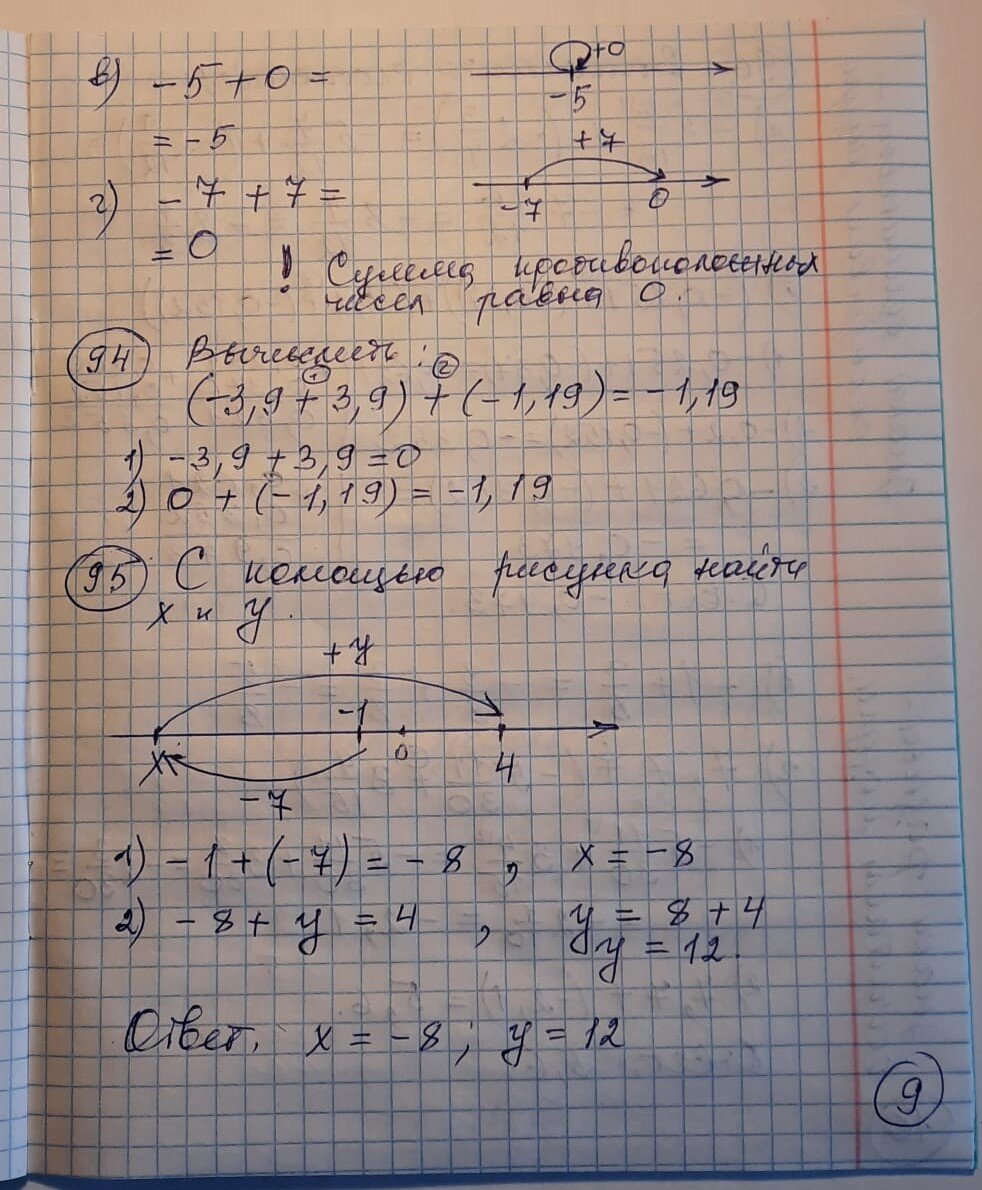 в) -5+0 =
+0
-5
= -5
+7
г) -7+7 =
-7 0
= 0
! Сумма противоположных
чисел равна 0.
94 Вычислить:
1 2
(-3,9+3,9)+(-1,19)=-1,19
1) -3,9+3,9=0
2) 0+(-1,19)=-1,19
95 С помощью рисунка найти
x и y.
+y
-1
x 0 4
-7
1) -1+(-7)=-8, x=-8
2) -8+y=4, y=8+4
y=12.
Ответ. x=-8; y=12
9